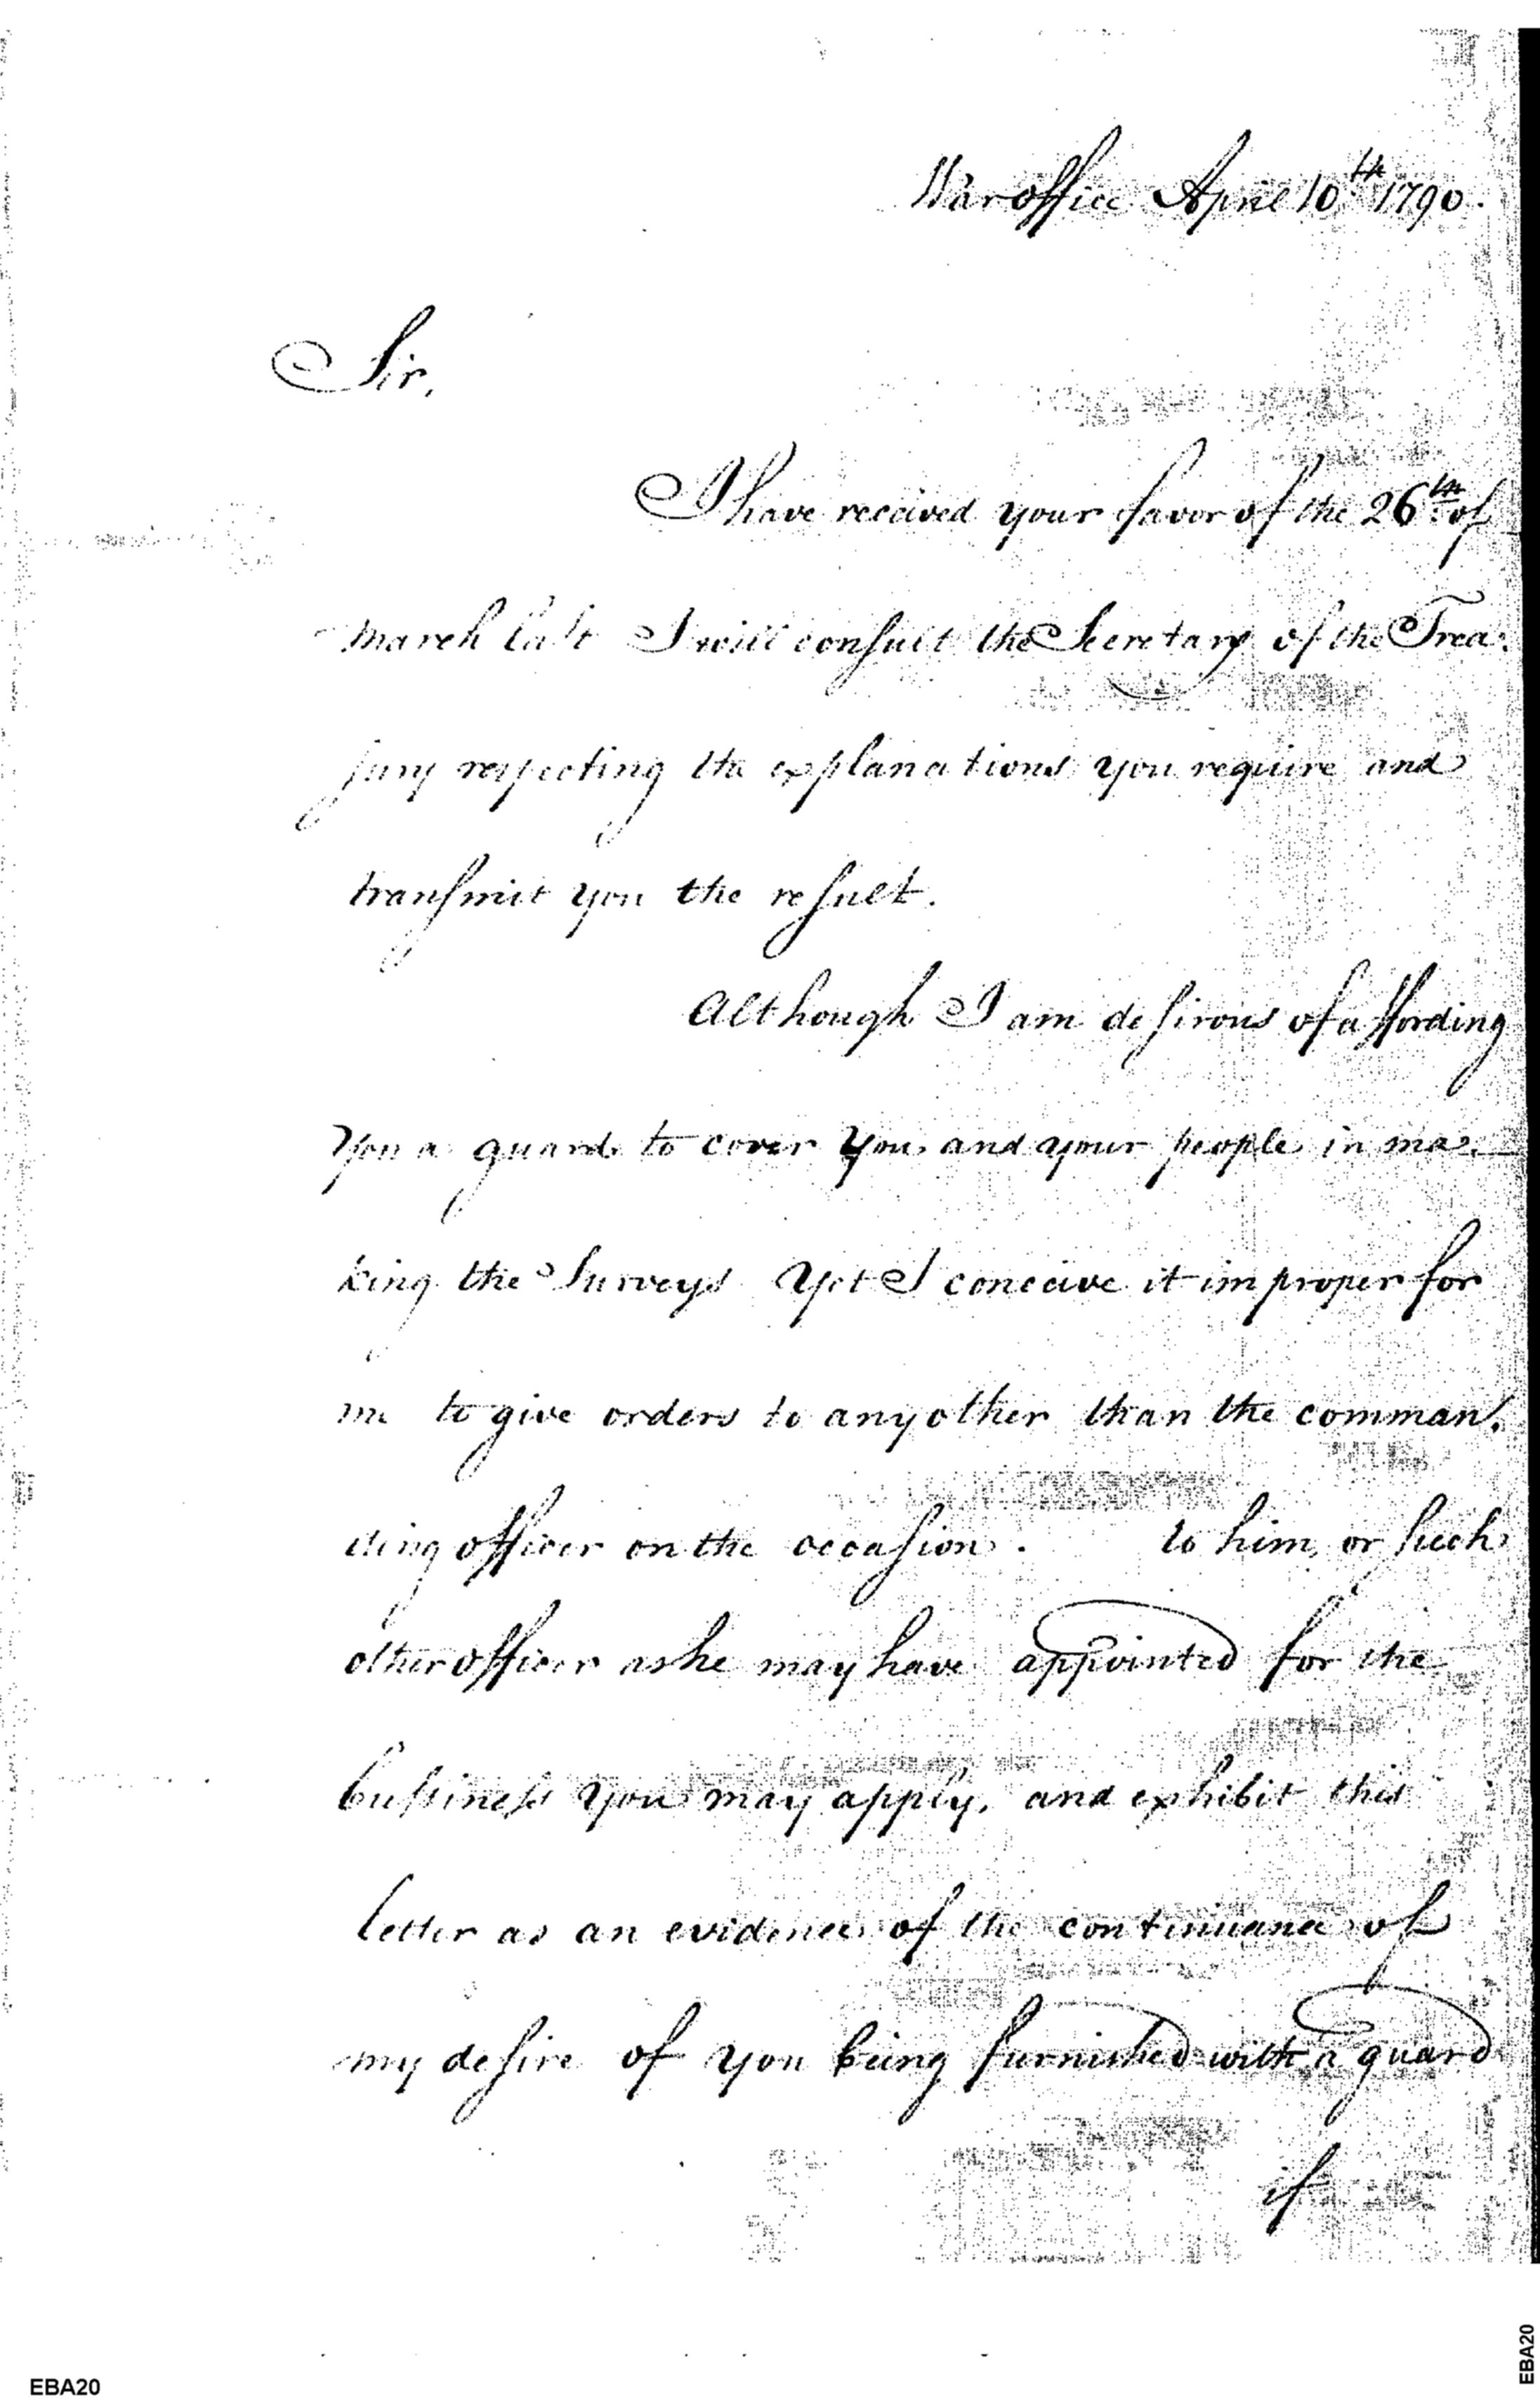 War office April 10th 1790.
Sir,
I have received your favor of the 26th of
march last I will consult the Secretary of the Trea:
sury respecting the explanations you require and
transmit you the result.
Although I am desirous of affording
You a guard to cover You and your people in ma:
king the Surveys Yet I conceive it improper for
me to give orders to any other than the comman,
ding officer on the occasion. to him, or such
other officer as he may have appointed for the
bussiness you may apply, and exhibit this
letter as an evidence of the continuance of
my desire of you being furnished with a guard
if
EBA20
EBA20